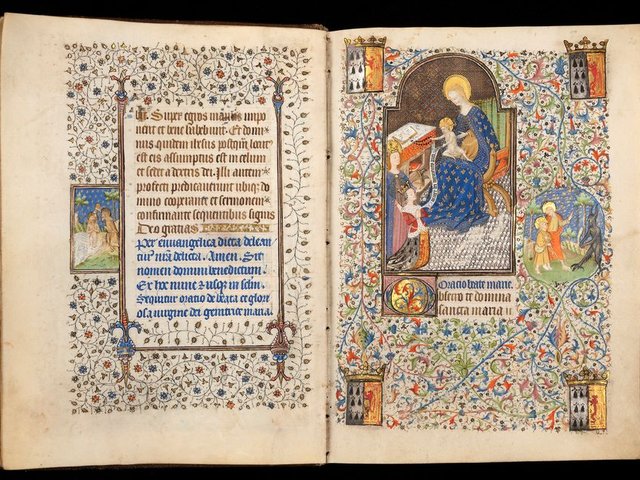 Super egros manus impo
nent et bene habebunt. Et domi
nus quidem ihesus postquam locut
est eis assumptus est in celum
et sedet a dextris dei. Illi autem
profecti predicauerunt ubique do
mino cooperante et sermonem
confirmante sequentibus signis
Deo gratias
Per euuangelica dicta delean
tur nostra delicta. Amen. Sit
nomen domini benedictum.
Ex hoc nunc et usque in seculum
Sequitur oratio de beata et glori
osa uirgine dei genitrice maria.
Oracio beate marie.
Obsecro te domina
sancta maria